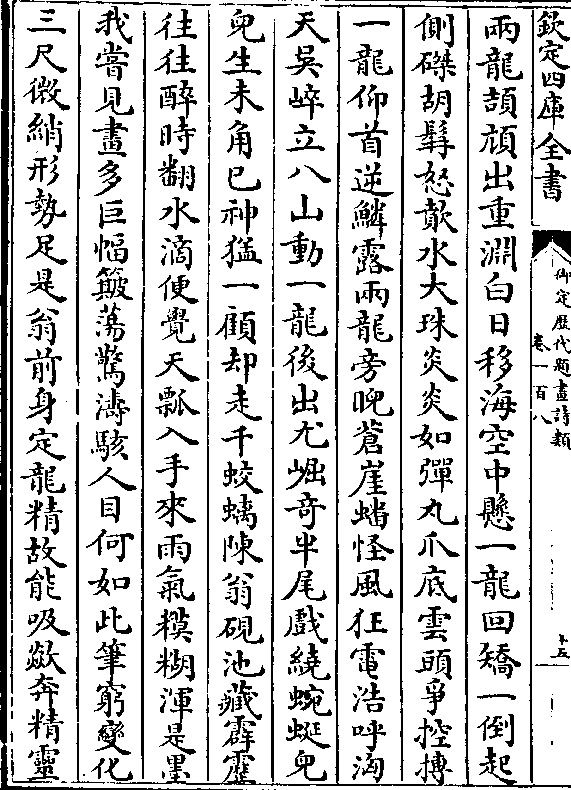 欽定四庫全書
御定歷代題畫詩類
卷一百八
十五
兩龍頡頏出重淵白日移海空中懸一龍回矯一倒起
側磔胡髯怒歕水大珠炎炎如彈丸爪底雲頭爭控摶
一龍仰首逆鱗露兩龍旁睨蒼崖蟠怪風狂電浩呼洶
天吳崪立八山動一龍後出尤崛奇半尾戲繞蜿蜒兒
兒生未角已神猛一顧却走千蛟螭陳翁硯池藏霹靂
往往醉時翻水滴便覺天瓢入手來雨氣糢糊渾是墨
我嘗見畫多巨幅簸蕩驚濤駭人目何如此筆窮變化
三尺微綃形勢足是翁前身定龍精故能吸歘奔精靈